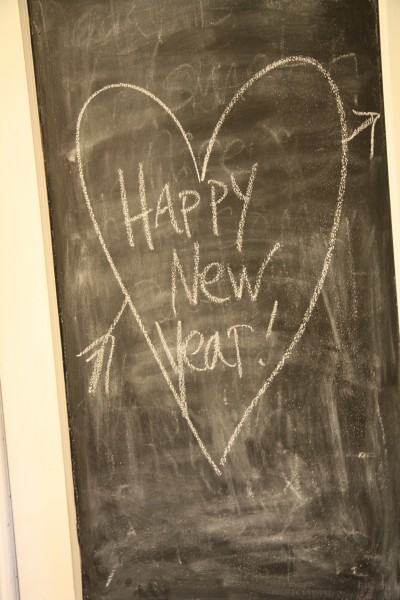 HAPPY
New
Year!